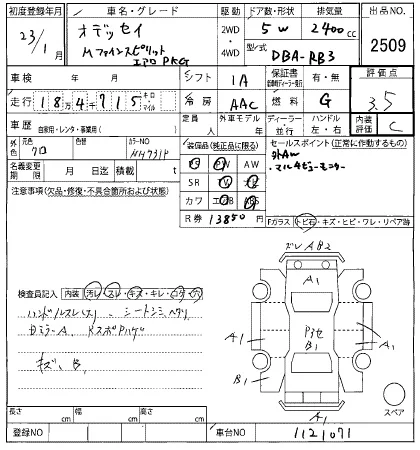 初度登録年月 車名・グレード 駆動 ドア数・形状 排気量 出品NO.
23/1 オデッセイ 2WD・4WD 5W 2400cc 2509
Mファインスピリット
エアロPKG 型式 DBA-RB3
車検 年 月 シフト IA 保証書 有・無 評価点
走行 184,715 キロ・マイル 冷房 AAC 燃料 G 3.5
車歴 自家用・レンタ・事業用( ) 定員 人 外車モデル 年 ディーラー・並行 ハンドル 左・右 内装評価 C
外色 元色 クロ 色替 カラーNO NH731P 装備品(純正品に限る) セールスポイント(正常に作動するもの)
名義変更期限 月 日迄 積載 t PS PW AW 外AW
注意事項(欠品・修復・不具合箇所および状態) SR TV ・マルチビューモニター
カワ ABS
R券 13850円 Fガラス トビ石・キズ・ヒビ・ワレ・リペア跡
ズレAB2
A1
検査員記入 内装 汚レ・スレ・キズ・キレ・コゲ・穴
ハンドルスレ シートシミ、ヘタリ A1 B1 A1
DミラーA、
キズ、B、 B1
A1 スペア
長さ cm 幅 cm 高さ cm
登録NO 車台NO 1121071